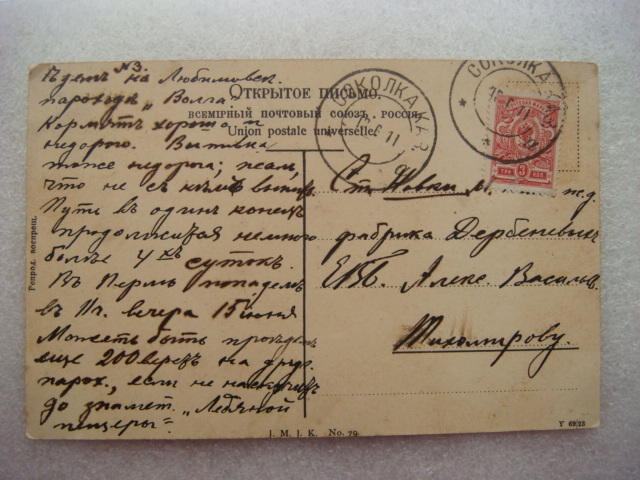 №3.
Едемъ на Любимовск.
пароходѣ "Волга"
Кормятъ хорошо и
недорого. Выпивка
тоже недорога; жаль,
что не съ кѣмъ выпить.
Путь въ одинъ конецъ
продолжится немного
болѣе 4хъ сутокъ.
Въ Пермь попадемъ
въ 11ч. вечера 15 июня
Можетъ быть проѣдемъ
еще 200 верстъ на друг.
парох., если не
до знамен. "Ледяной
пещеры"=
ОТКРЫТОЕ ПИСЬМО.
ВСЕМІРНЫЙ ПОЧТОВЫЙ СОЮЗ. РОССІЯ.
Union postale universelle.
СОКОЛКА КАЗ
6 11
СОКОЛКА
ТРИ 3 КОП
Ст. Новки ж.д.
фабрика Дербеневыхъ
ЕВБ. Алекс. Василь.
Тихомирову.
Репрод. воспрещ.
J. M. J. K. No. 79.
Y 6923